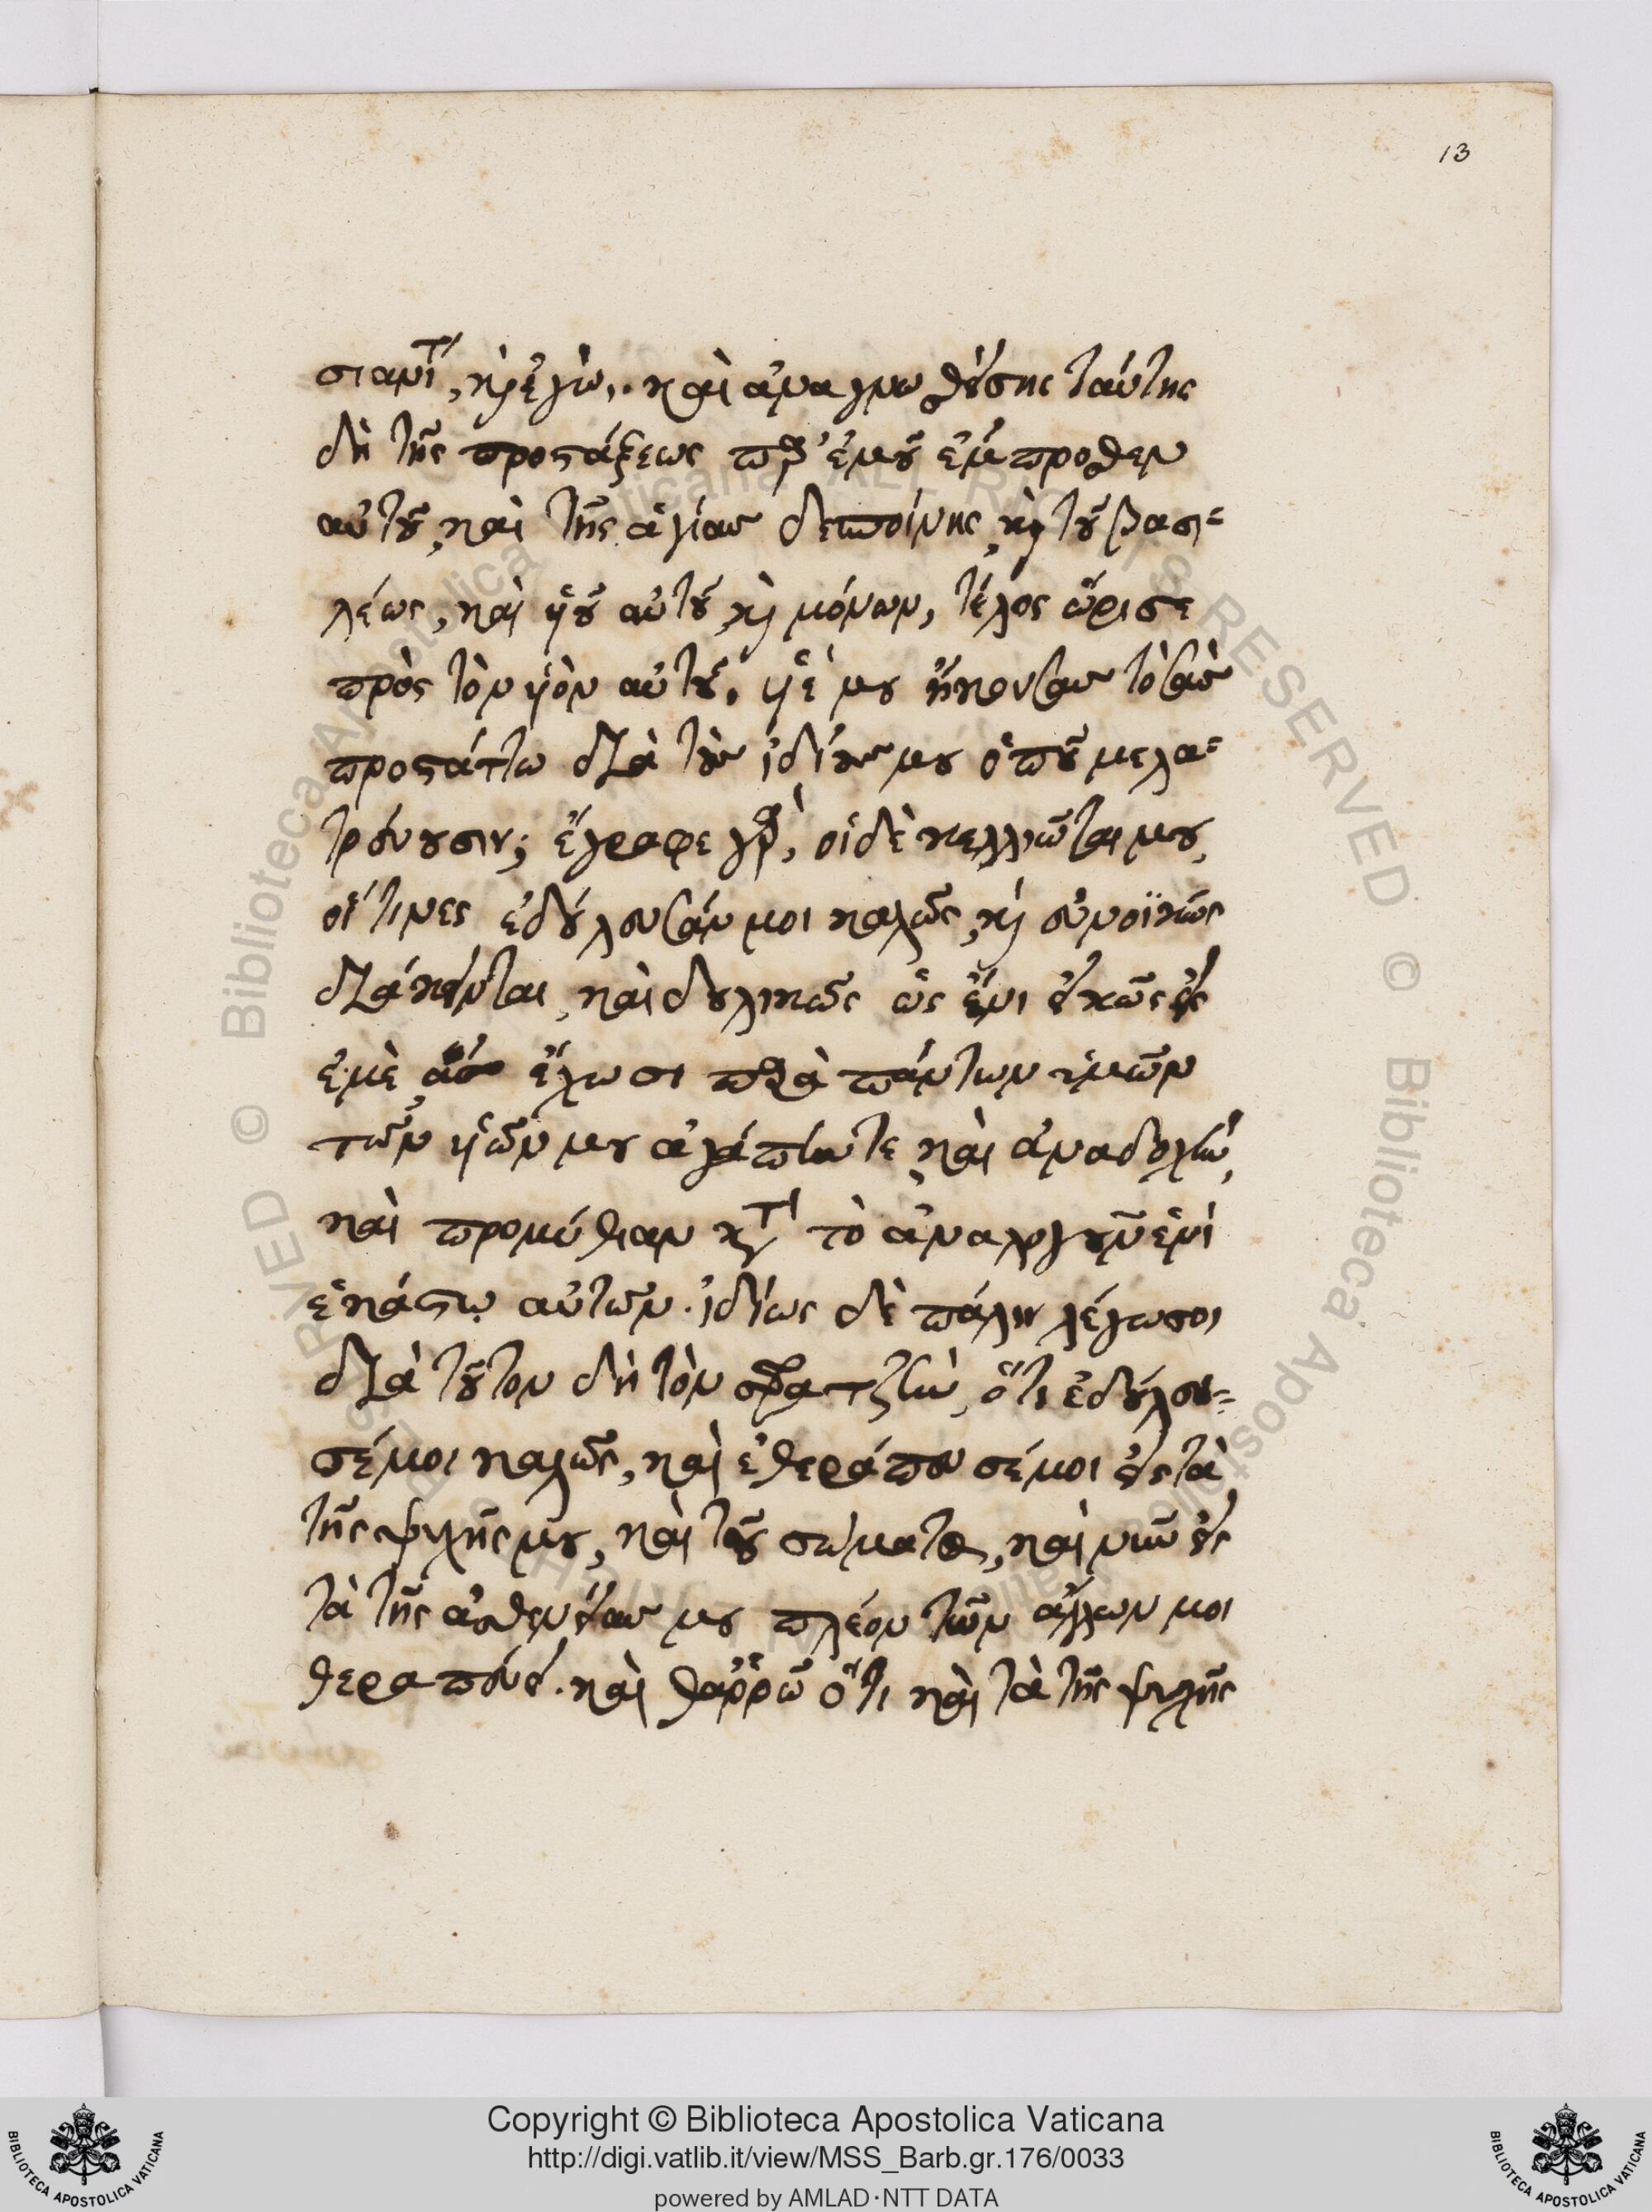 13
σιανῖ, κὶ ἐγώ,. καὶ ἀναγνωσθείσης ταύτης
δὴ τῆς προστάξεως παρ' ἐμοῦ ἔμπροσθεν
αὐτοῦ, καὶ τῆς ἁγίας δεσποίνης, κὶ τοῦ βασι=
λέως, καὶ ὑοῦ αὐτοῦ κὶ μόνων, τέλος ὥρισε
πρὸς τὸν ὑὸν αὐτοῦ. ὑέ μου ἤκουσας τὸ σὰς
προστάττω διὰ τοὺς ἰδίους μου ὁποῦ με λα=
τρεύουσιν; ἔγραφε γὰρ, οἱ δὲ κελλιῶται μου,
οἵτινες ἐδούλευσάν μοι καλῶς, κὶ εὐνοϊκῶς
διάκεινται, καὶ δουλικῶς ὡς ἔνι εἰκὸς εἰς
ἐμὲ, ἔχωσι παρὰ πάντων ὑμῶν
τῶν ὑῶν μου ἀγάπην τε, καὶ ἀναδοχὴν,
καὶ προμήθειαν κατὰ τὸ ἀναλογοῦν ἑνὶ
ἑκάστῳ αὐτῶν. ἰδίως δὲ πάλιν λέγω σοι
διὰ τοῦτον δὴ τὸν σφρατζὴν, ὅτι ἐδούλευ=
σέ μοι καλῶς, καὶ ἐθεράπευσέ μοι εἰς τὰ
τῆς ψυχῆς μου, καὶ τοῦ σώματος, καὶ νῦν εἰς
τὰ τῆς ἀσθενείας μου πλέον τῶν ἄλλων μοι
θεραπεύει. καὶ θαῤῥῶ ὅτι καὶ τὰ τῆς ψυχῆς
Copyright © Biblioteca Apostolica Vaticana
http://digi.vatlib.it/view/MSS_Barb.gr.176/0033
powered by AMLAD·NTT DATA
BIBLIOTECA APOSTOLICA VATICANA
BIBLIOTECA APOSTOLICA VATICANA